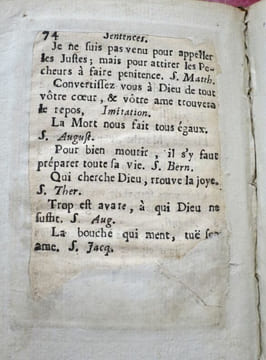 74 Sentences.
Je ne suis pas venu pour appeller
les Justes; mais pour attirer les Pe-
cheurs à faire penitence. S. Matth.
Convertissez vous à Dieu de tout
vôtre cœur, & vôtre ame trouvera
le repos, Imitation.
La Mort nous fait tous égaux.
S. August.
Pour bien mourir, il s'y faut
préparer toute sa vie. S. Bern.
Qui cherche Dieu, trouve la joye.
S. Ther.
Trop est avare, à qui Dieu ne
suffit. S. Aug.
La bouche qui ment, tuë son
ame. S. Jacq.